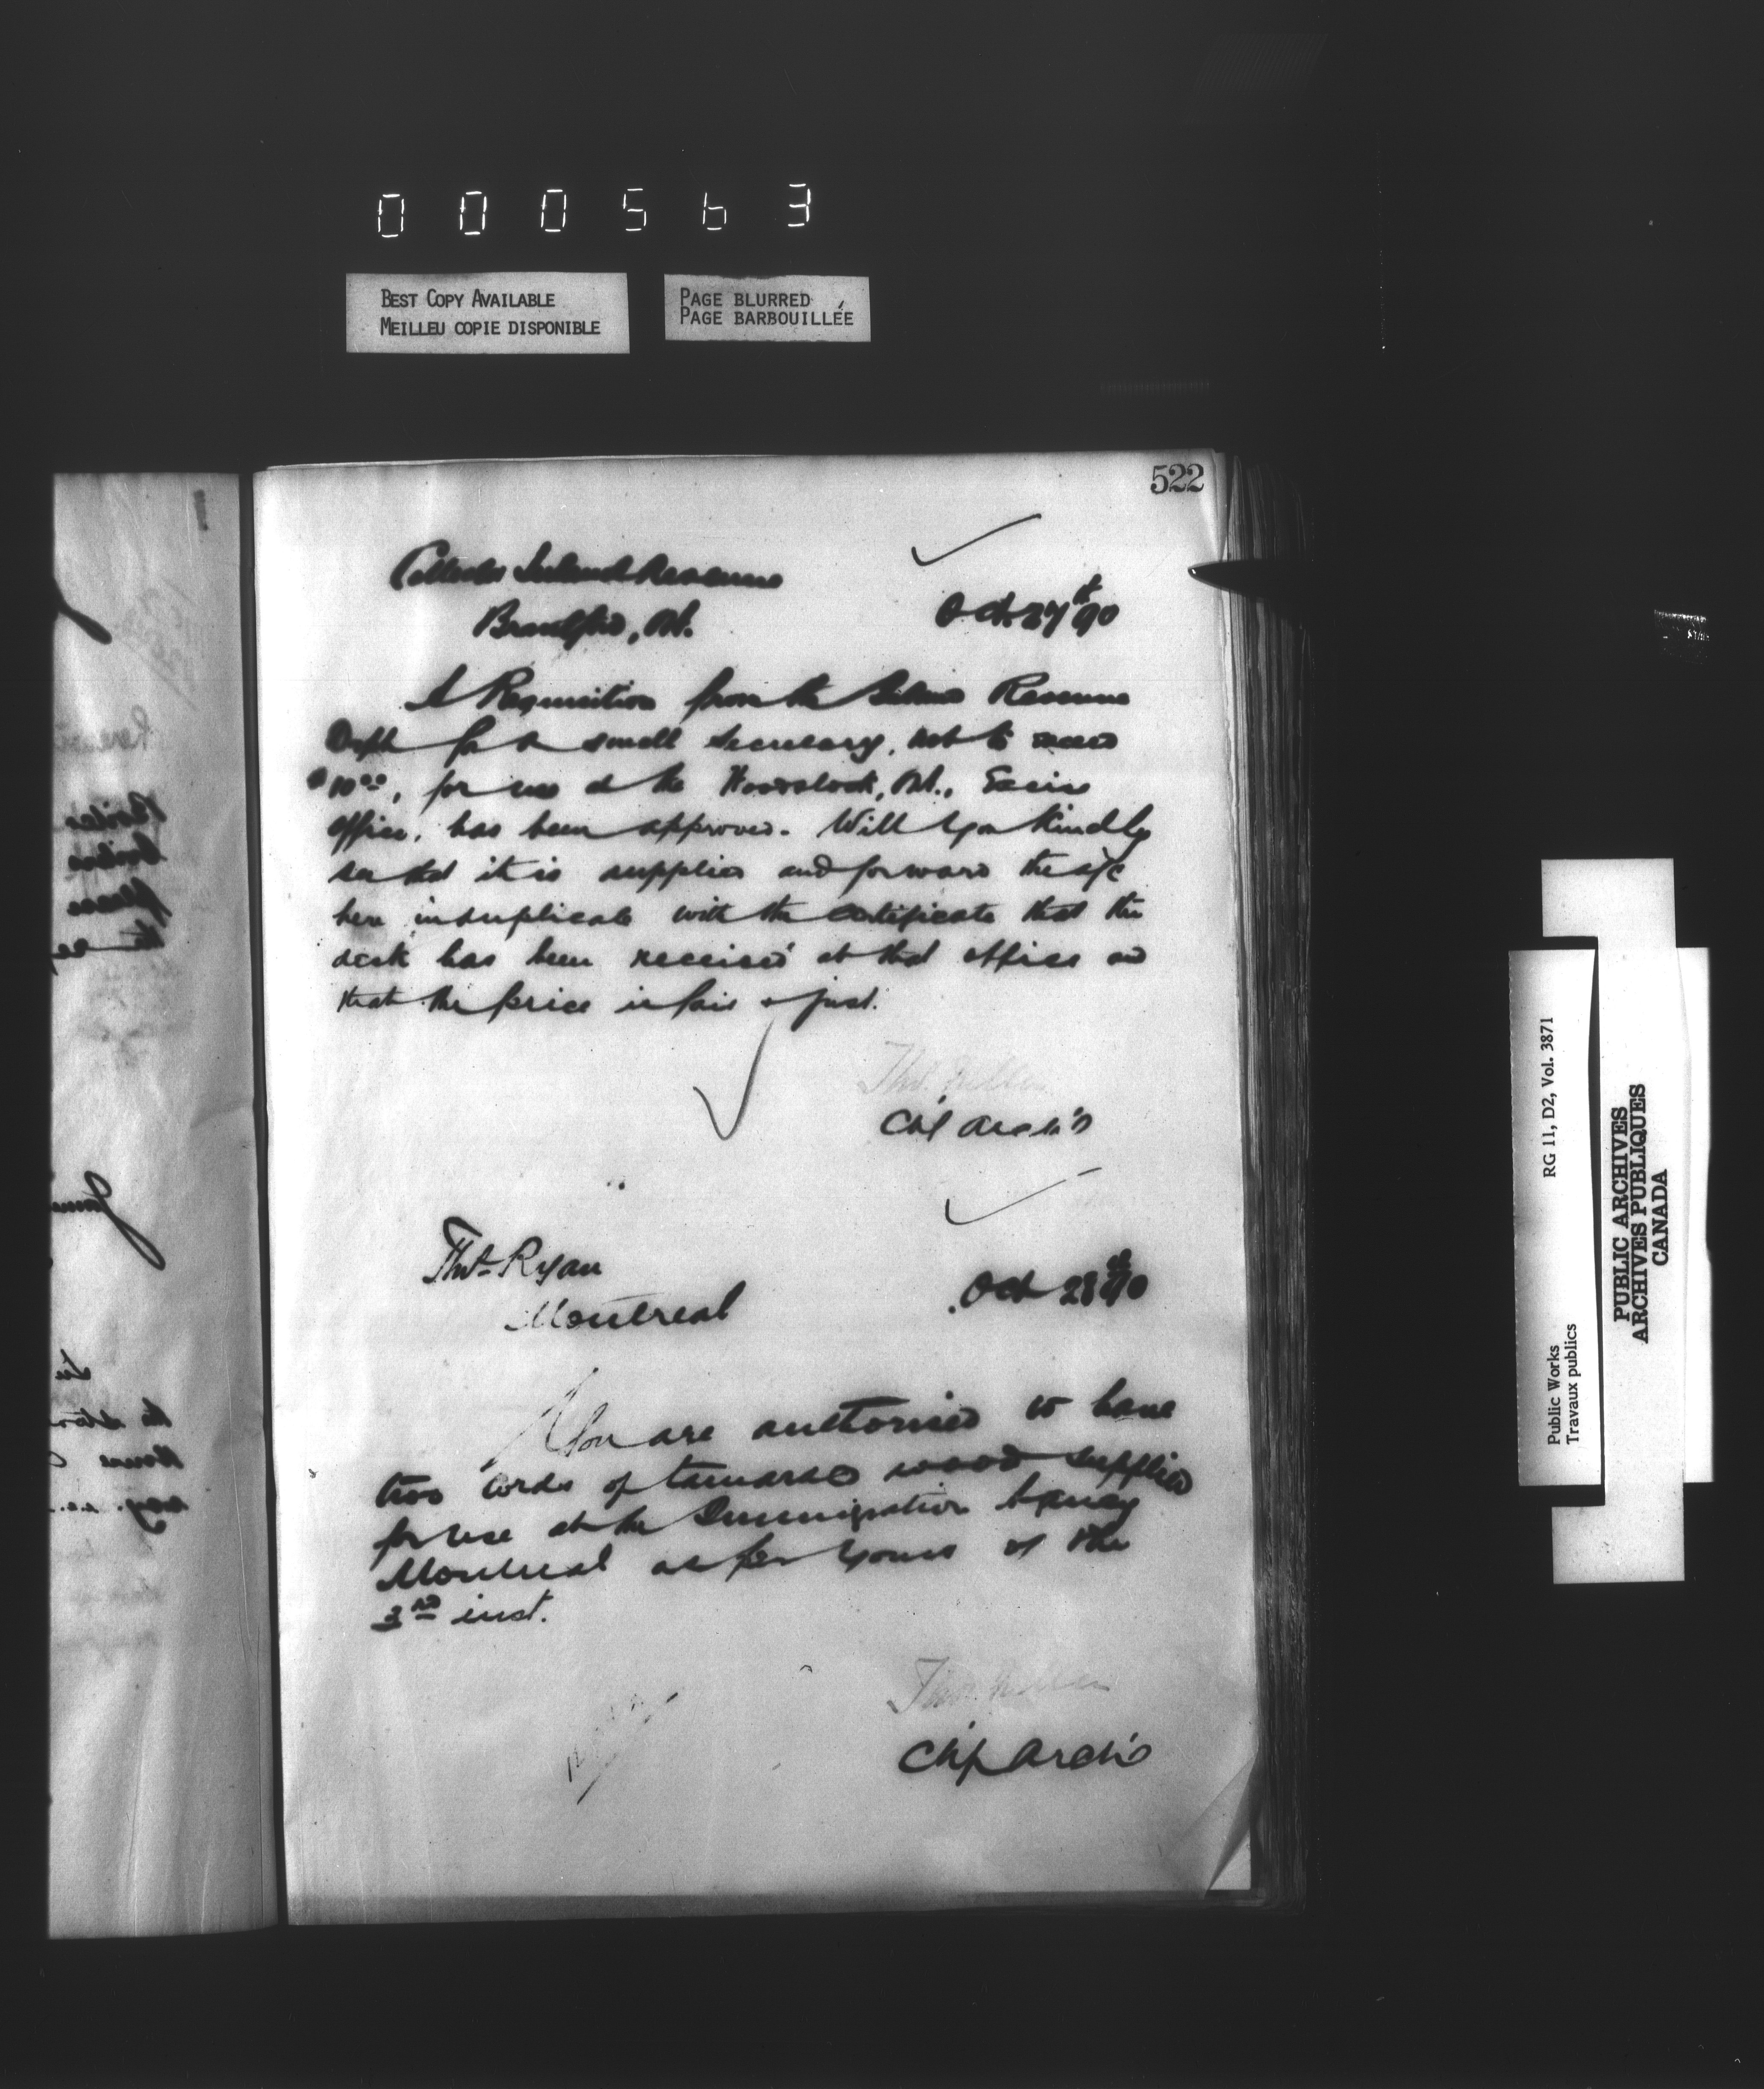 000563
BEST COPY AVAILABLE
MEILLEU COPIE DISPONIBLE
PAGE BLURRED
PAGE BARBOUILLÉE
522
Collector Inland Revenue
Brantford, Ont.
Oct 27th 90
A Requisition from the Inland Revenue
Dept for a small secretary, not to exceed
$10.00, for use at the Woodstock, Ont., Excise
office, has been approved. Will you kindly
see that it is supplied and forward the a/c
here in duplicate with the certificate that the
desk has been received at that office and
that the price is fair & just.
Thos. Fuller
Chf Archt
Thos Ryan
Montreal
Oct 28th 90
You are authorised to have
two cords of tamarac wood supplied
for use at the Immigration Agency
Montreal as per yours of the
3rd inst.
Thos. Fuller
Chf Archt
RG 11, D2, Vol. 3871
Public Works
Travaux publics
PUBLIC ARCHIVES
ARCHIVES PUBLIQUES
CANADA